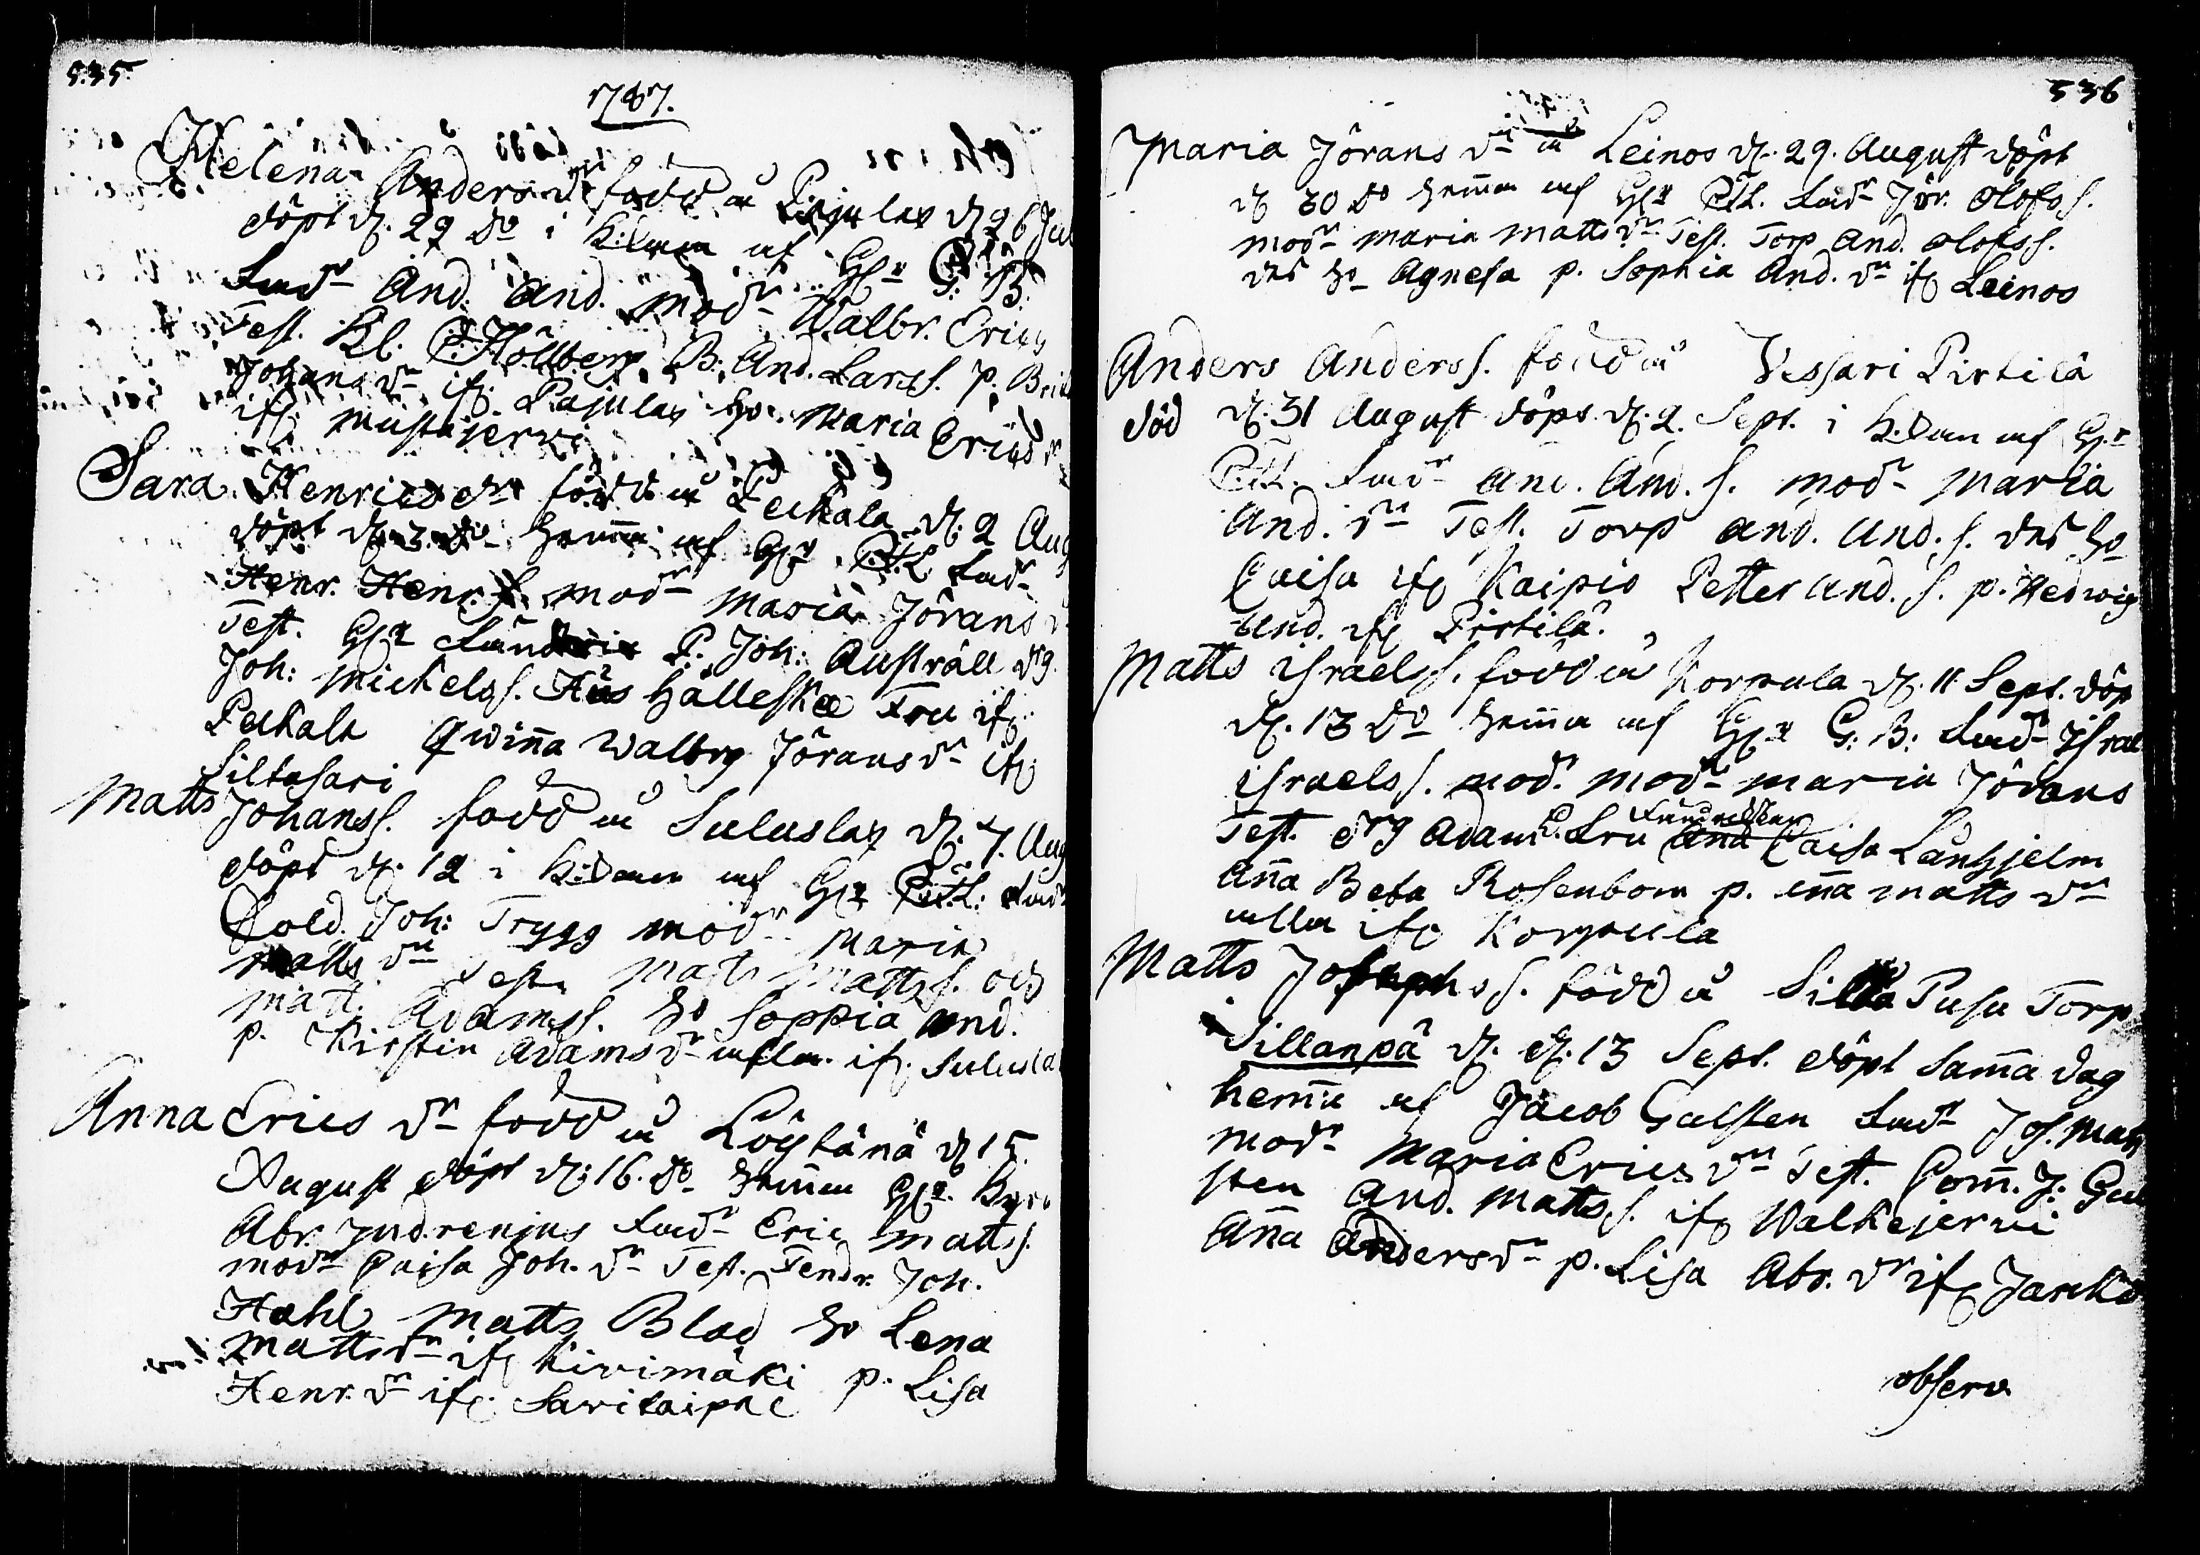 535.
1787.
Helena Anders dr född å Pajulax d. 26 Jul
döpt d. 29 do i Kidan af H:r G: B:
Fadr And. And. modr Walbr. Erics
Test. Kl. C. Höllberg B. And. Larss. p. Brit
Johans dr ifr. Pajulax ho. Maria Erics dr
ifr Mustajerwi
Sara Henrics dr född å Peckala d. 2 Aug
döpt d. 3. do hemma af H:r P.L. Fadr
Henr. Henr. s. modr Maria Jörans d
Test. H:r P. Joh: Austräll dg
Joh: Mickelss. Hälleska Fru ifr.
Peckala Qwinna Walbrg Jörans dr ifr
Siltasari
Matts Johanss. född å Suluslax d. 7. Aug
döpt d. 12 i Kidan af H:r P.L: Fadr
Sold. Joh: Trygg modr Maria
Matts dr Test. Matts Mattss. och
Matt. Adamss. ho Sophia And.
p. Kirstin Adams dr alla ifr. Sulusla
Anna Erics dr född å Löytänä d 15
August döpt d: 16. do hemma H:r
Abr. Indrenius Fadr Eric Matts s.
modr Caisa Joh. dr Test. Fendr. Joh.
Hahl Matts Blad ho Lena
Matts dr ifr Kivimäki p. Lisa
Henr. dr ifr. Savikaipale
536
Maria Jörans dr å Leinos d. 29. August döpt
d 30 do hemma af H:r P.L. Fadr Jör. Olofs s.
modr Maria Matts dr Test. Torp And. Olofs s.
des ho Agnesa p. Sophia And. dr ifr Leinos
Anders Anderss. född å Vessari Pirtilä
död d. 31 August döpt d. 2. Sept. i Kidan af H:r
P.L. Fadr And. And. s. modr Maria
And. dr Test. Torp And. And. s. des ho
Caisa ifr Kaipio Petter And. s. p. Hedwig
And. ifr Pirtilä.
Matts Israelss. född å Korpula d. 11 Sept. döp
d. 13 do hemma af H:r G: B: Fadr Israel
Israelss. mod. modr Maria Jörans
Test. drg Adam Fru Caisa Långhjelm
Anna Beta Rosenbom p. Anna Matts dr
alla ifr Korpula
Matts Josephss. född å Silta Pusa Torp
Sillanpä d. d. 13 Sept. döpt samma dag
hemma af Jacob Gulsten Fadr Jos. Matts
modr Maria Erics dr Test. Comm. J: Gul
sten And. Mattss. ifr Walkejerwi
Anna Anders dr p. Lisa Abr. dr ifr Jarikä
observ.